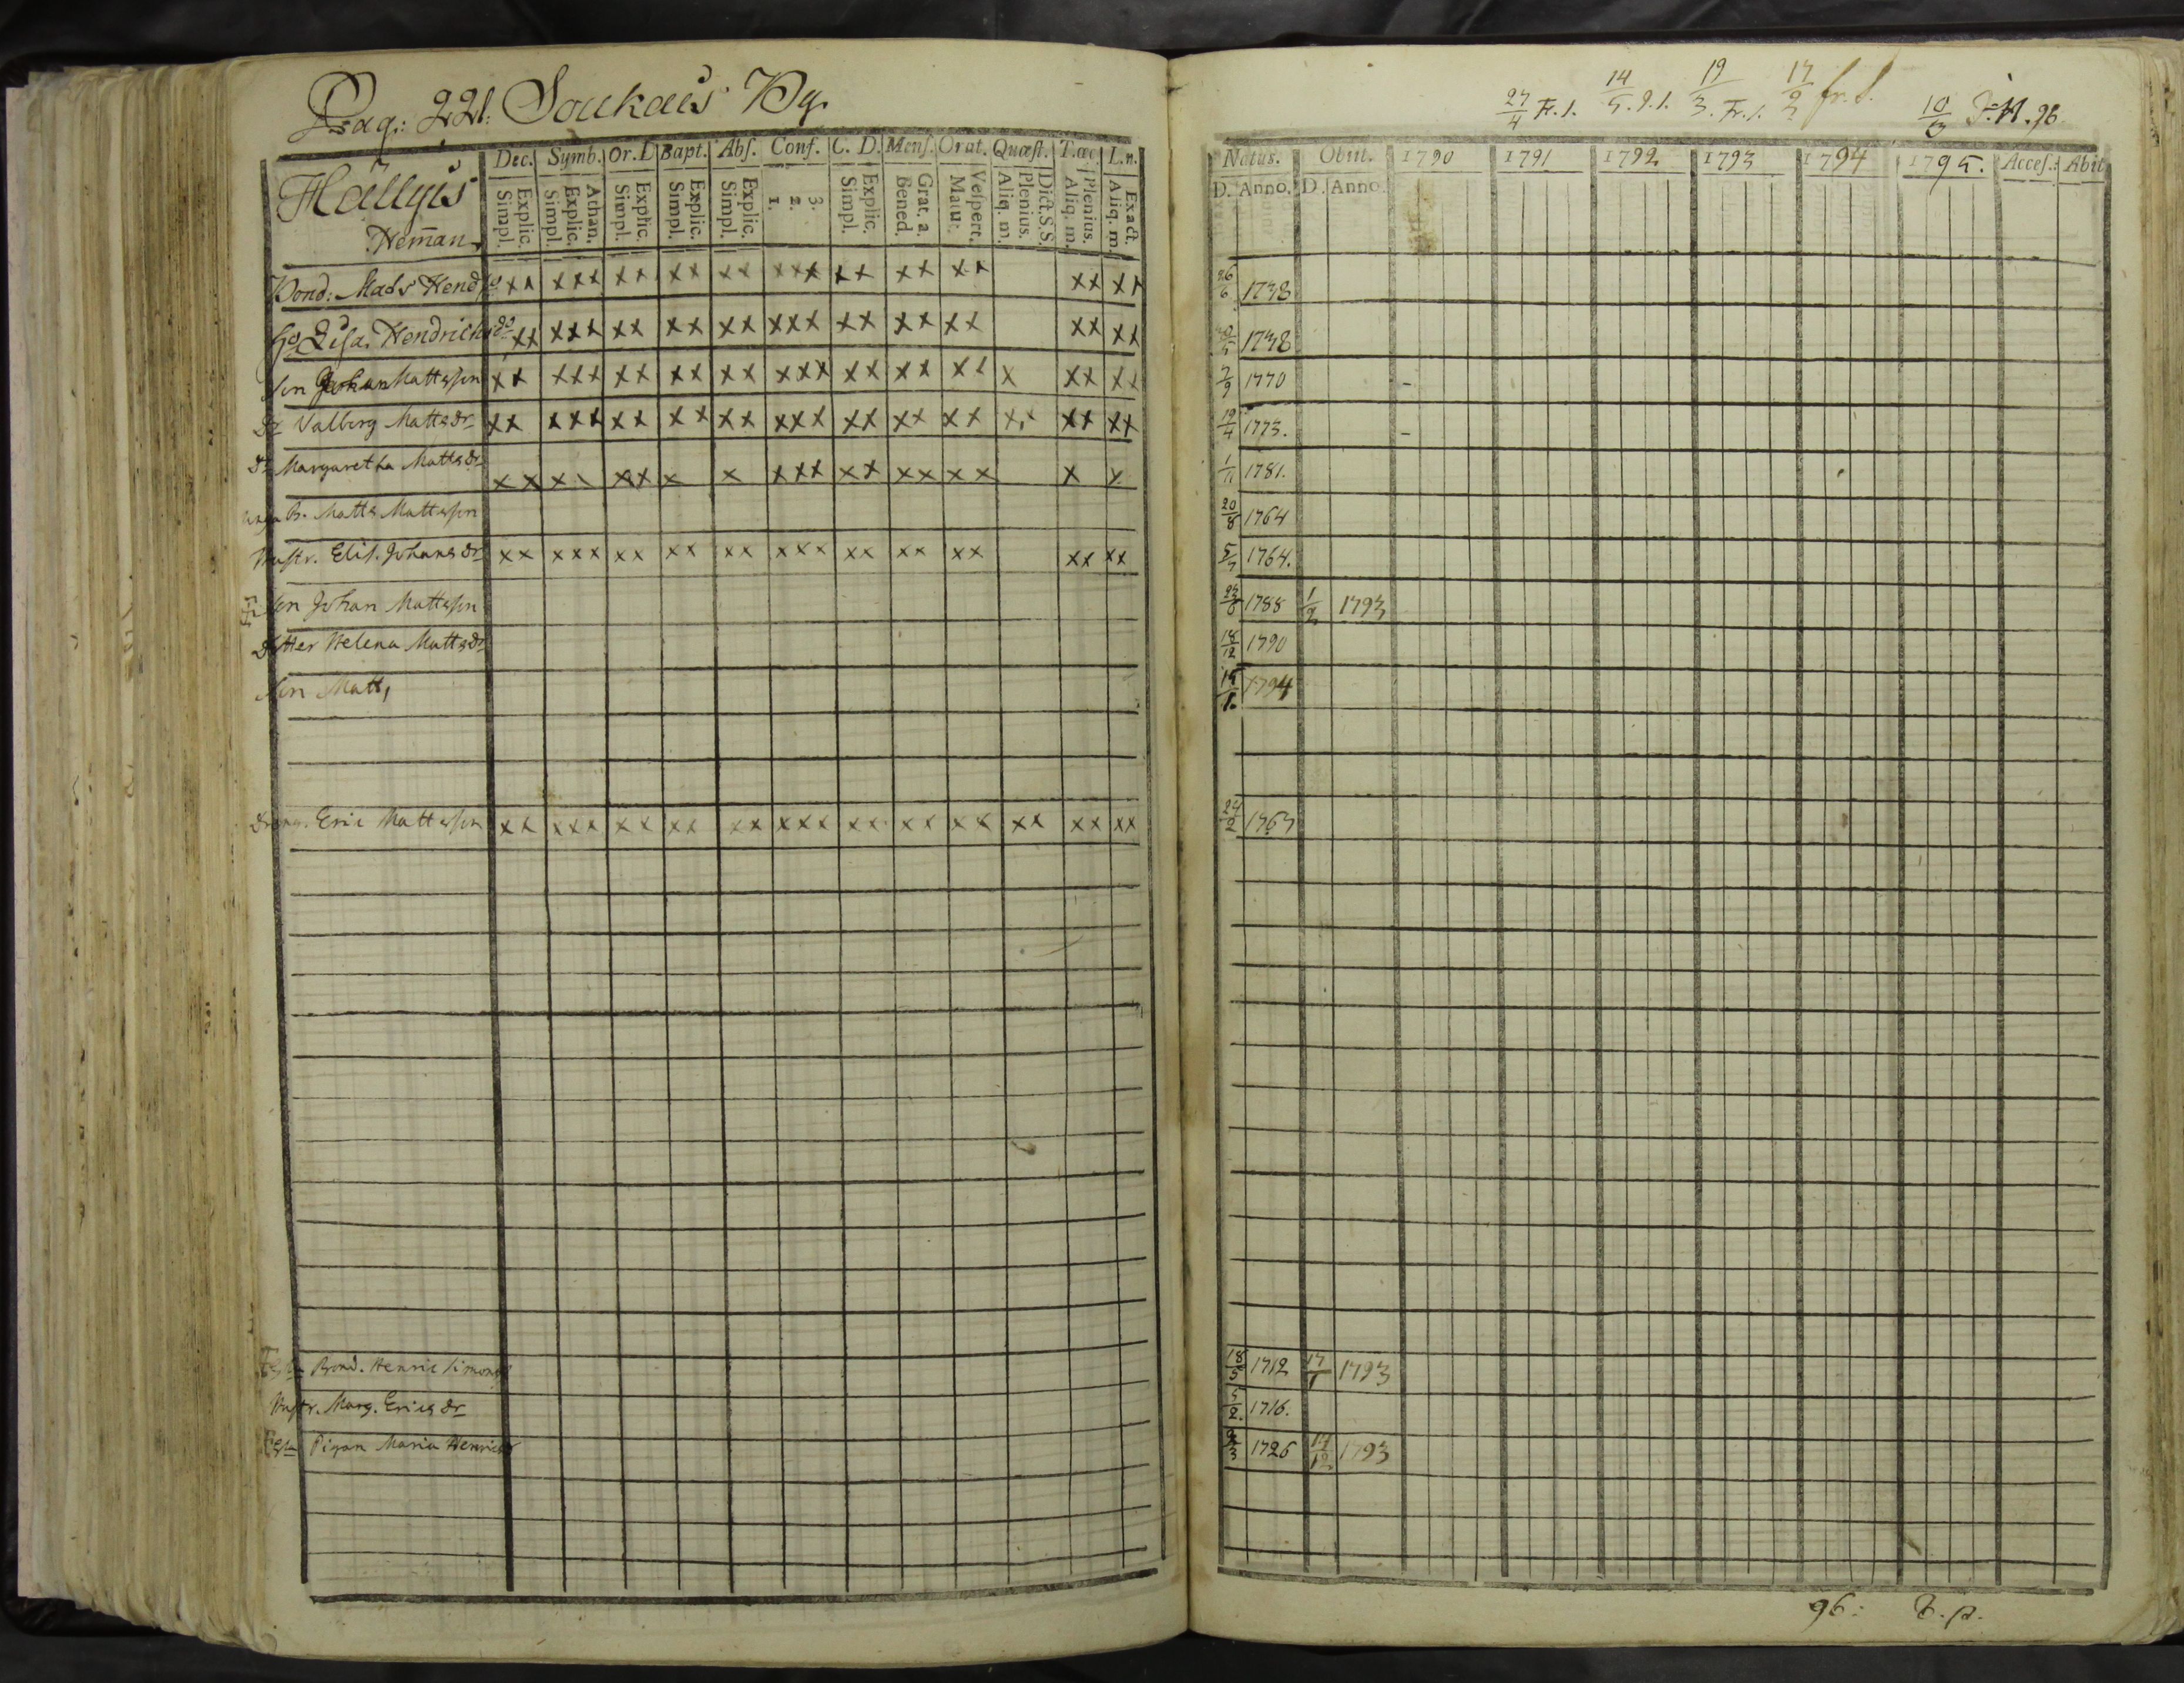 Pag: 221: Soukais By.
Hällyis
Heman.
Dec. Symb. Or. D Bapt. Abs. Conf. C. D. Mens. Orat. Quæst. T.œc. L.n.
Explic. Simpl. Athan. Explic. Simpl. Explic. Simpl. Explic. Simpl. Explic. Simpl. 3. 2. 1. Explic. Simpl. Grat. a. Bened. Vespert. Matut. Dict.S.S. Plenius. Aliq. m. Plenius. Aliq. m. Exact. Aliq. m.
Bond: Mads Hend xx xxx xx xx xx xxx xx xx xx xx xx
Lisa Hendrichs dr xx xxx xx xx xx xxx xx xx xx xx xx
Son Johan Mattsson xx xxx xx xx xx xxx xx xx xx x xx xx
Dr Valborg Matts dr xx xxx xx xx xx xxx xx xx xx xx xx xx
Dr Margaretha Matts dr xx xx xx x x xxx xx xx xx x x
Matts Mattsson
Hustr. Elis. Johans dr xx xxx xx xx xx xxx xx xx xx xx xx
Son Johan Mattsson
dotter Helena Matts dr
Son Matts
dräng. Eric Mattsson xx xxx xx xx xx xxx xx xx xx xx xx xx
Bond. Henric Simonss
Hustr. Marg. Erics dr
Pigan Maria Henricsdr
27/4 Fr. S. 14/5. 91. 19/3. Fr. S. 17/3 fr. S. 10/3 96
Natus. Obiit. 1790 1791 1792 1793 1794 1795. Acces. Abit
D. Anno. D. Anno.
26/6 1738
1738
7/9 1770 -
19/4 1773. -
1/11 1781.
20/8 1764
5/7 1764.
23/6 1788 1/2 1793
18/12 1790
15/1. 1794
24/2 1767
18/5 1712 17/1 1793
5/2. 1716.
1726 14/12 1793
96: